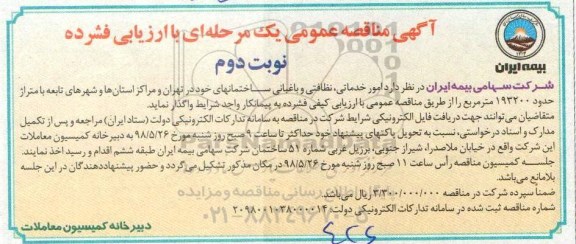 آگهی مناقصه عمومی یک مرحله‌ای با ارزیابی فشرده
نوبت دوم
بیمه ایران
شرکت سهامی بیمه ایران در نظر دارد امور خدماتی، نظافتی و باغبانی ساختمانهای خود در تهران و مراکز استان‌ها و شهرهای تابعه با متراژ
حدود ۱۹۳۲۰۰ مترمربع را از طریق مناقصه عمومی با ارزیابی کیفی فشرده به پیمانکار واجد شرایط واگذار نماید.
متقاضیان می‌توانند جهت دریافت فایل الکترونیکی شرایط شرکت در مناقصه به سامانه تدارکات الکترونیکی دولت (ستاد ایران) مراجعه و پس از تکمیل
مدارک و اسناد درخواستی، نسبت به تحویل پاکتهای پیشنهاد خود حداکثر تا ساعت صبح روز شنبه مورخ ۹۸/۵/۲۶ به دبیرخانه کمیسیون معاملات
این شرکت واقع در خیابان ملاصدرا، شیراز جنوبی، برزیل غربی شماره ۵۱ ساختمان شرکت سهامی بیمه ایران طبقه ششم اقدام و رسید اخذ نمایند.
جلسه کمیسیون مناقصه رأس ساعت ۱۱ صبح روز شنبه مورخ ۹۸/۵/۲۶ در مکان مذکور تشکیل می‌گردد و حضور پیشنهاددهندگان در این جلسه
بلامانع می‌باشد.
ضمناً سپرده شرکت در مناقصه ۳/۳۰۰/۰۰۰/۰۰۰ ریال می‌باشد.
شماره مناقصه ثبت شده در سامانه تدارکات الکترونیکی دولت: ۲۰۹۸۰۰۱۰۳۸۰۰۰۰۱۴
دبیرخانه کمیسیون معاملات